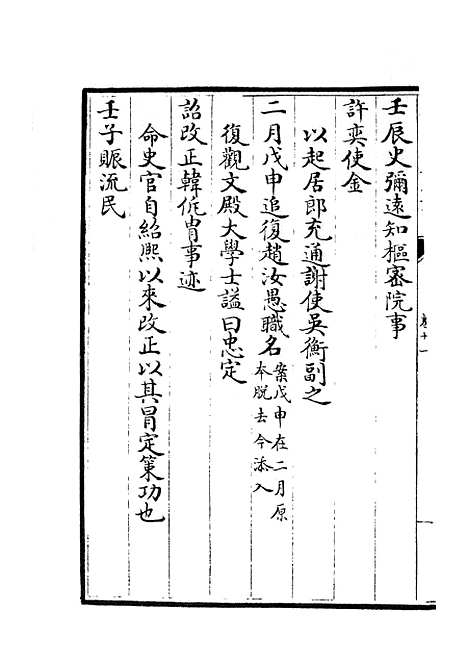 壬辰史彌遠知樞密院事
許奕使金
以起居郎充通謝使吳衡副之
二月戊申追復趙汝愚職名案戊申在二月原本脱去今添入
復觀文殿大學士謚曰忠定
詔改正韓侂冑事迹
命史官自紹熙以來改正以其冒定策功也
壬子賑流民
卷十一